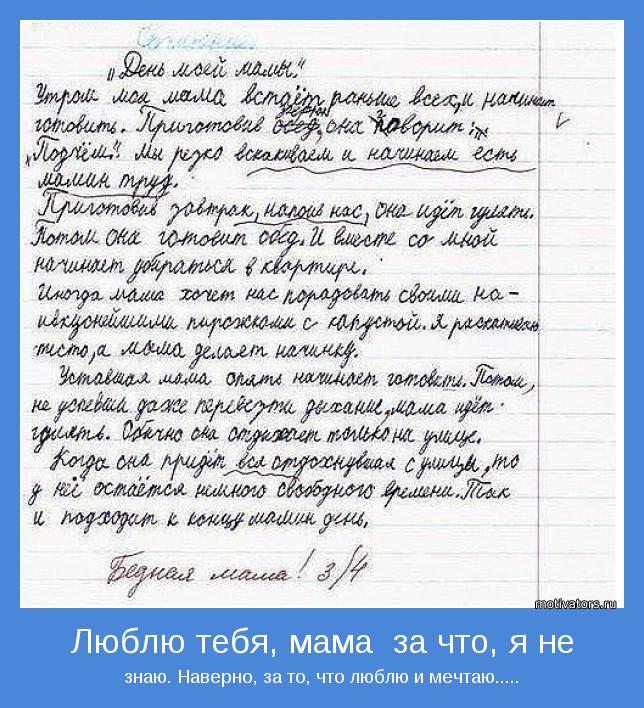 Сочинение.
„День моей мамы."
Утром моя мама встаёт раньше всех, и начинает
готовить. Приготовив она говорит:
„Подъём"! Мы резко вскакиваем и начинаем есть
мамин труд.
Приготовив завтрак, напоив нас, она идёт гулять.
Потом она готовит обед. И вместе со мной
начинает убираться в квартире.
Иногда мама хочет нас порадовать своими на-
ивкуснейшими пирожками с капустой. Я раскатываю
тесто, а мама делает начинку.
Уставшая мама опять начинает готовить. Потом,
не успевши даже перевезти дыхание, мама идёт
гулять. Обычно она отдыхает только на улице.
Когда она придёт вся отдохнувшая с улицы, то
у неё остаётся немного свободного времени. Так
и подходит к концу мамин день.
Бедная мама! 3/4
motivators.ru
Люблю тебя, мама за что, я не
знаю. Наверно, за то, что люблю и мечтаю.....